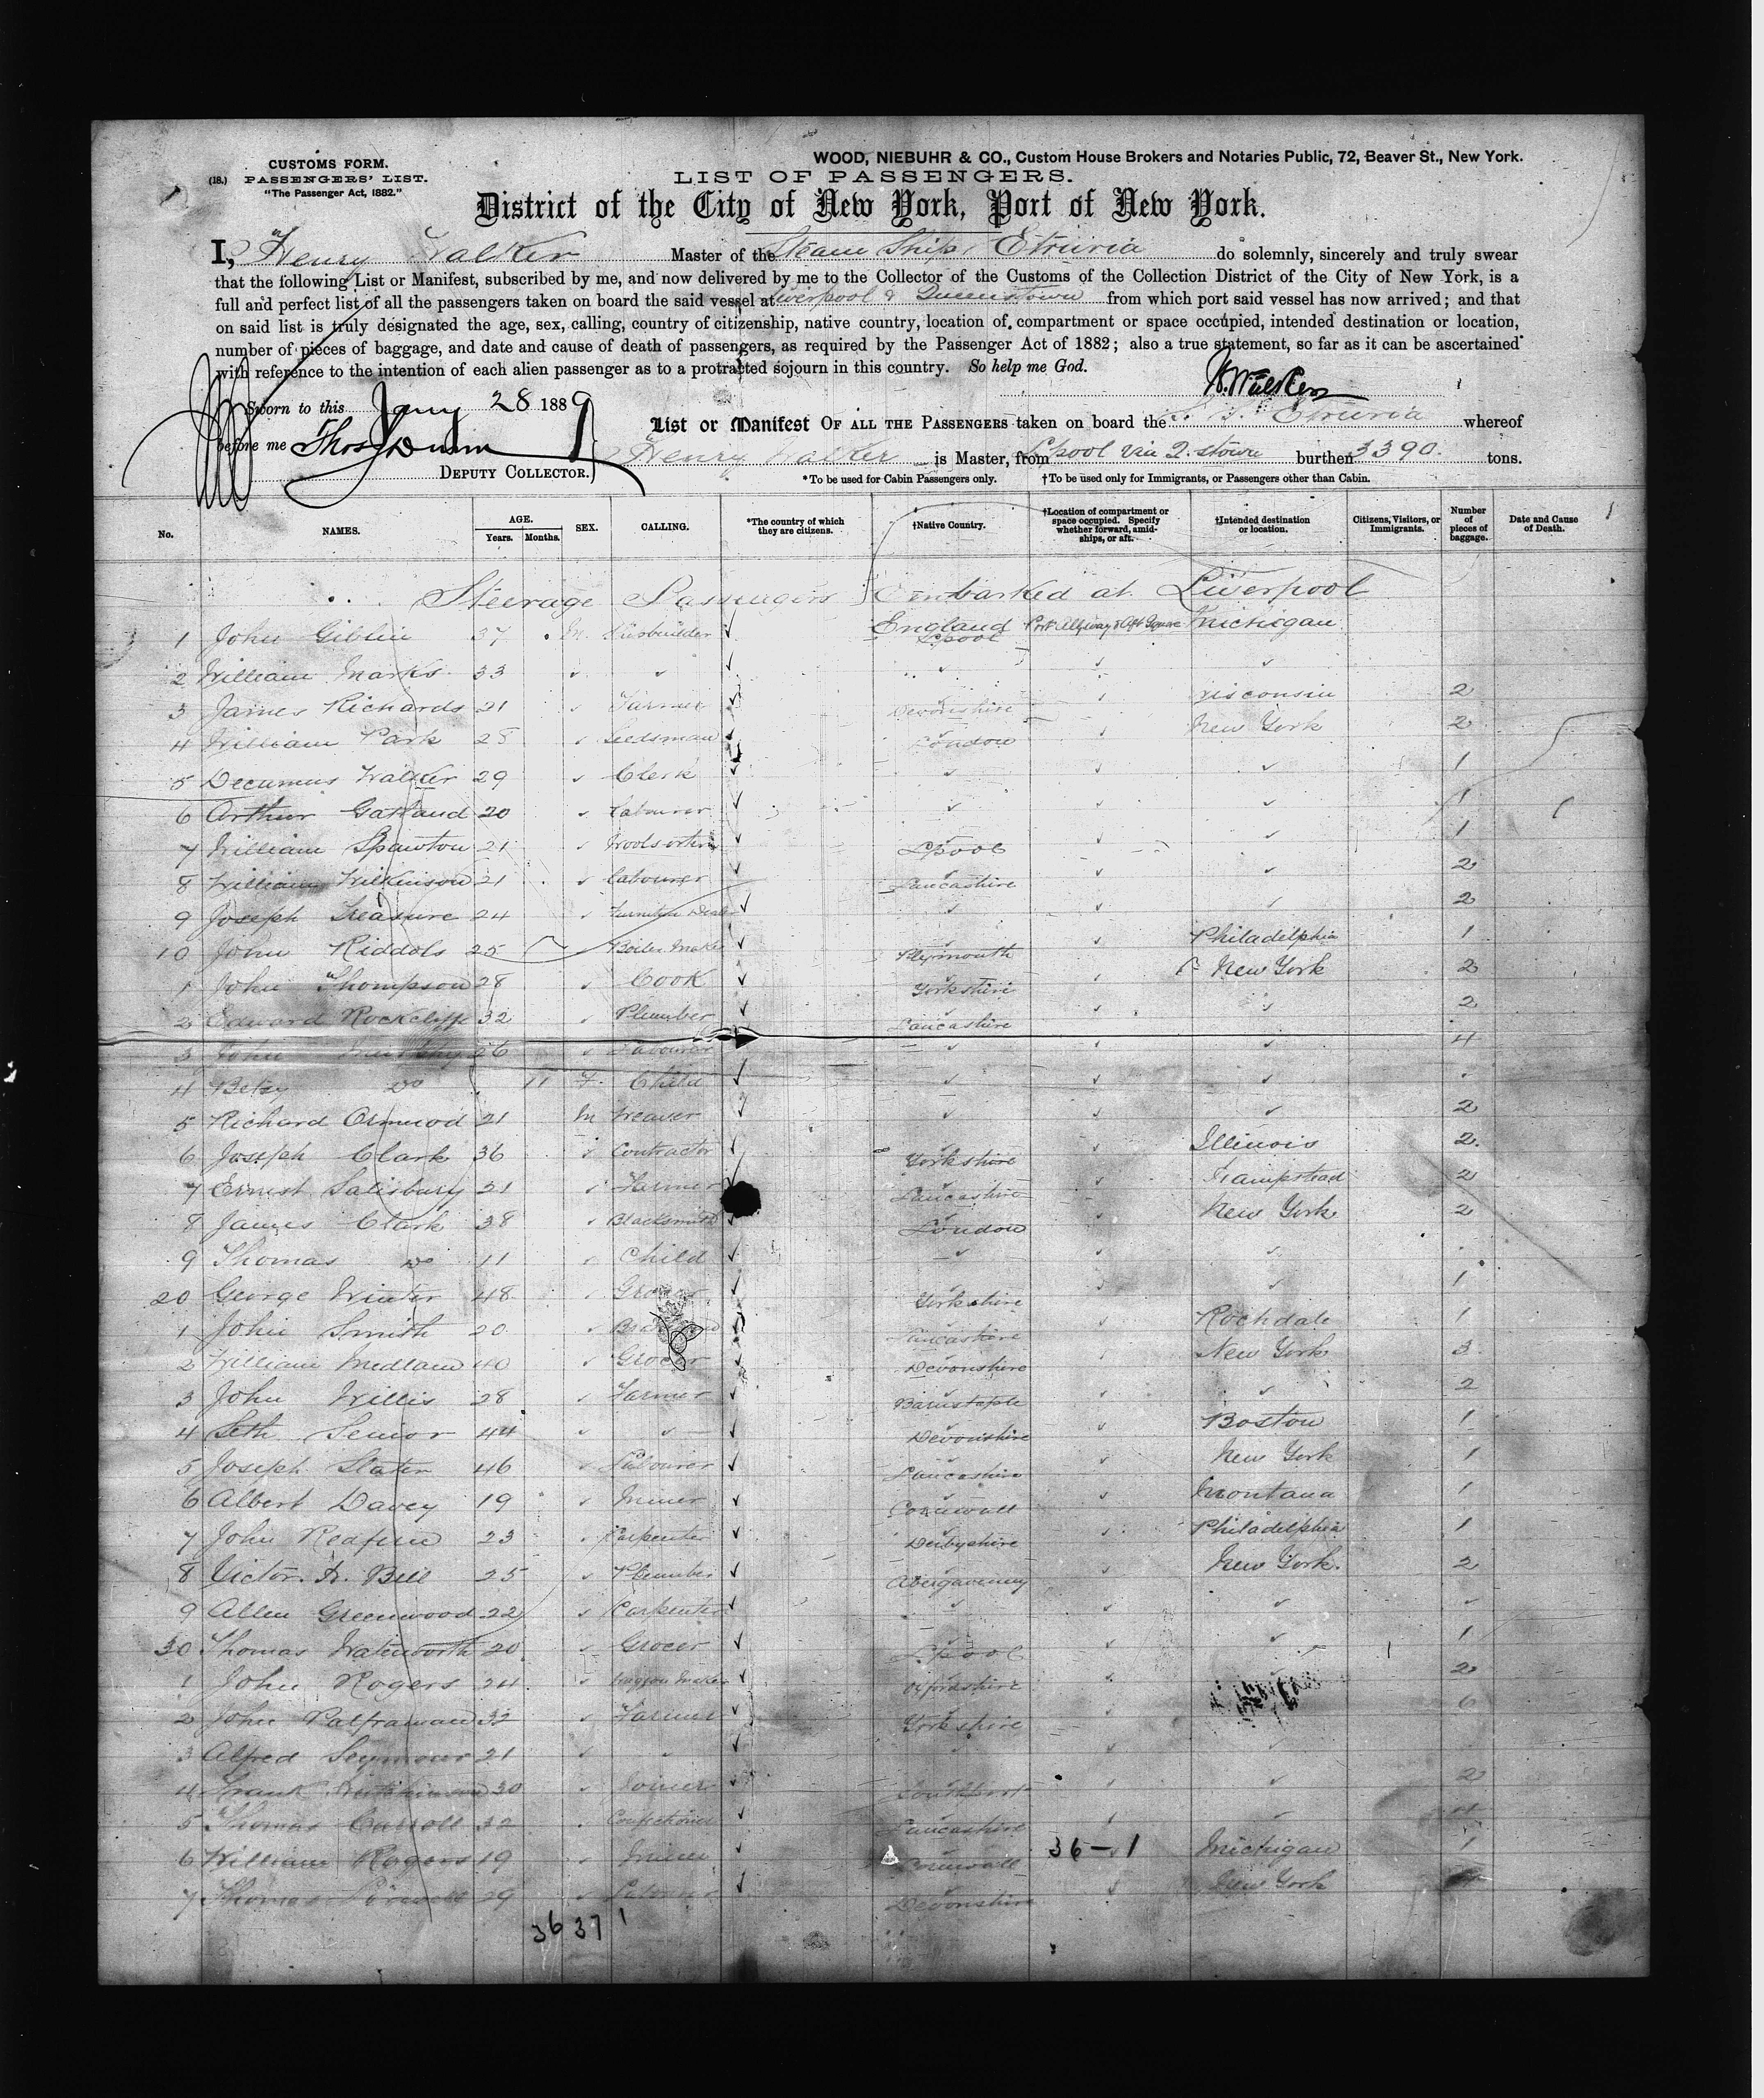 WOOD, NIEBUHR & CO., Custom House Brokers and Notaries Public, 72, Beaver St., New York.
CUSTOMS FORM.
(18.) PASSENGERS' LIST.
"The Passenger Act, 1882."
LIST OF PASSENGERS.
District of the City of New York, Port of New York.
I, Henry Walker Master of the Steam Ship, Etruria do solemnly, sincerely and truly swear
that the following List or Manifest, subscribed by me, and now delivered by me to the Collector of the Customs of the Collection District of the City of New York, is a
full and perfect list of all the passengers taken on board the said vessel at Liverpool & Queenstown from which port said vessel has now arrived; and that
on said list is truly designated the age, sex, calling, country of citizenship, native country, location of compartment or space occupied, intended destination or location,
number of pieces of baggage, and date and cause of death of passengers, as required by the Passenger Act of 1882; also a true statement, so far as it can be ascertained
with reference to the intention of each alien passenger as to a protracted sojourn in this country. So help me God.
H. Walker
Sworn to this Jany 28 1889
List or Manifest OF ALL THE PASSENGERS taken on board the S. S. Etruria whereof
before me Thos J Dunn
Henry Walker is Master, from Lpool via Q. stown burthen 3390. tons.
DEPUTY COLLECTOR.
*To be used for Cabin Passengers only. †To be used only for Immigrants, or Passengers other than Cabin.
No. NAMES. AGE. Years. Months. SEX. CALLING. *The country of which they are citizens. †Native Country. †Location of compartment or space occupied. Specify whether forward, amidships, or aft. †Intended destination or location. Citizens, Visitors, or Immigrants. Number of pieces of baggage. Date and Cause of Death.
Steerage Passengers Embarked at Liverpool
1 John Giblin 37 M. England Lpool Port Alleyway & Aft Square Michigan
2 William Marks 33
3 James Richards 21 Farmer Devonshire Wisconsin 2
4 William Park 28 Seedsman London New York 2
5 Decumus Walker 29 Clerk 1
6 Arthur Gatland 20 Labourer 1
7 William Spawton 21 Woolsorter Lpool 1
8 William Wilkinson 21 Labourer Lancashire 2
9 Joseph Treasure 24 Furniture Dealer 2
10 John Riddols 25 Boiler Maker Plymouth Philadelphia 1
1 John Thompson 28 Cook Yorkshire New York 2
2 Edward Rockcliffe 32 Plumber Lancashire 2
3 John Murphy 26 Labourer 4
4 Betsy do 11 F. Child
5 Richard Ormerod 21 M Weaver 2
6 Joseph Clark 36 Contractor Yorkshire Illinois 2
7 Ernest Salisbury 21 Farmer Lancashire Hampstead 2
8 James Clark 38 Blacksmith London New York 2
9 Thomas do 11 Child
20 George Winter 48 Grocer Yorkshire 1
1 John Smith 20 Lancashire Rochdale 1
2 William Medland 40 Grocer Devonshire New York 3
3 John Willis 28 Farmer Barnstaple 2
4 Seth Senior 44 Devonshire Boston 1
5 Joseph Slater 46 Labourer Lancashire New York 1
6 Albert Davey 19 Miner Cornwall Montana 1
7 John Redfern 23 Carpenter Derbyshire Philadelphia 1
8 Victor. A. Bell 25 Plumber Abergavenny New York. 2
9 Allen Greenwood 22 Carpenter
30 Thomas Watmworth 20 Grocer Lpool 1
1 John Rogers 24 Waggon Maker Oxfordshire 2
2 John Palframan 32 Farmer Yorkshire 6
3 Alfred Seymour 21
4 Frank Hutchinson 30 Joiner Southport 2
5 Thomas Carroll 32 Confectioner Lancashire
6 William Rogers 19 Miner Cornwall 36-1 Michigan 1
7 Thomas 29 Labourer Devonshire New York
36 37 1